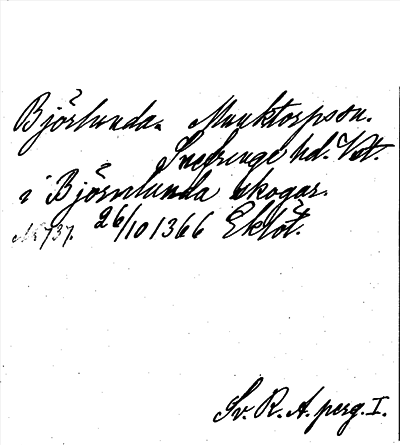 Björlunda. Munktorps sn.
Snevringe hd. Vstm.
i Björnlunda skogar.
No 737. 26/10 1366 Eklöt.
Sv. R. A. perg. I.